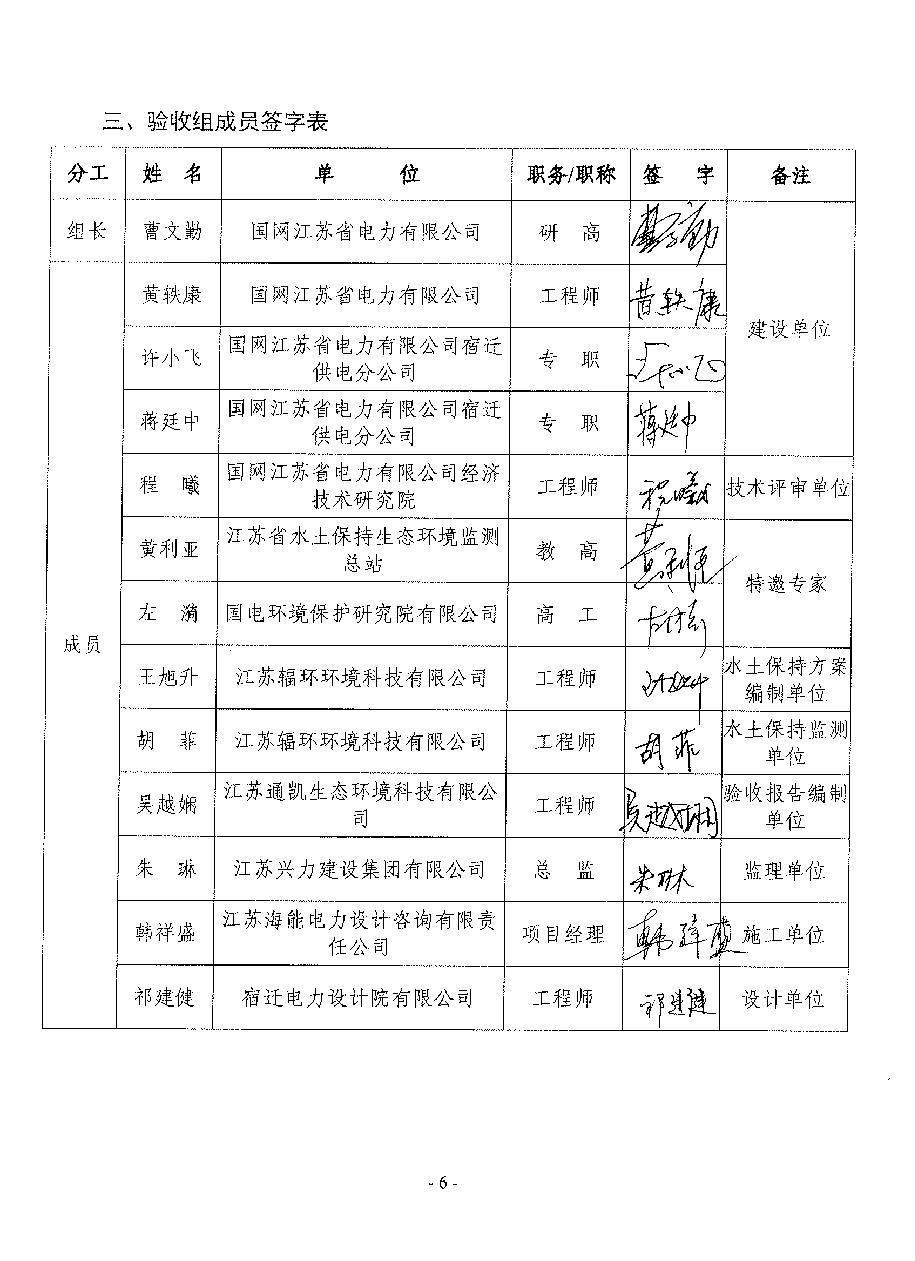 三、验收组成员签字表
分工 姓 名 单 位 职务/职称 签 字 备注
组长 曹文勤 国网江苏省电力有限公司 研 高 曹文勤
建设单位
成员
黄轶康 国网江苏省电力有限公司 工程师 黄轶康
许小飞 国网江苏省电力有限公司宿迁
供电分公司 专 职 许小飞
蒋廷中 国网江苏省电力有限公司宿迁
供电分公司 专 职 蒋廷中
程 曦 国网江苏省电力有限公司经济
技术研究院 工程师 程曦 技术评审单位
黄利亚 江苏省水土保持生态环境监测
总站 教 高 黄利亚
特邀专家
左 漪 国电环境保护研究院有限公司 高 工
王旭升 江苏辐环环境科技有限公司 工程师 王旭升 水土保持方案
编制单位
胡 菲 江苏辐环环境科技有限公司 工程师 胡菲 水土保持监测
单位
吴越娴 江苏通凯生态环境科技有限公
司 工程师 吴越娴 验收报告编制
单位
朱 琳 江苏兴力建设集团有限公司 总 监 朱琳 监理单位
韩祥盛 江苏海能电力设计咨询有限责
任公司 项目经理 韩祥盛 施工单位
祁建健 宿迁电力设计院有限公司 工程师 祁建健 设计单位
- 6 -